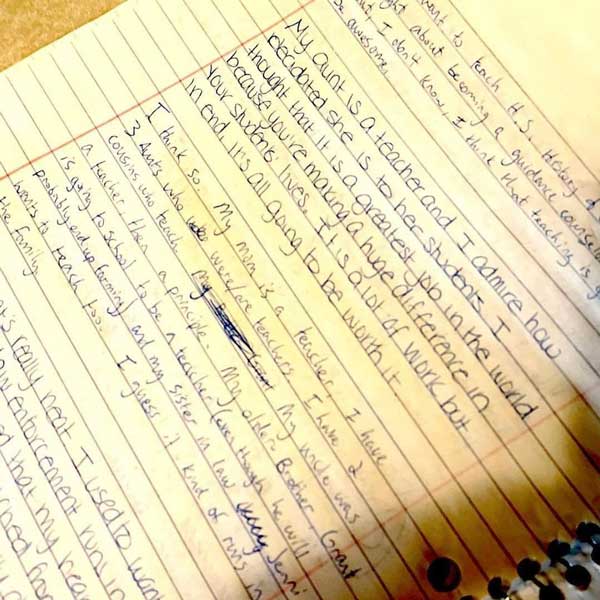 want to teach H.S. History
about becoming a guidance
but, I don't know, I think that teaching is
be awesome.
My aunt is a teacher and I admire how
decidated she is to her students. I
thought that it is a greatest job in the world
because you're making a huge difference in
your students lives. It is a lot of work but
in end it's all going to be worth it
I think so. My mom is a teacher, I have
3 Aunts who were/are teachers. I have 2
cousins who teach. My uncle was
a teacher, then a principle. My older Brother, Grant
is going to school to be a teacher (even though he will
probably end up farming) and my sister in law Jenni
wants to teach too. I guess it kind of runs in
the family
really neat I used to want
law enforcement run in
that my